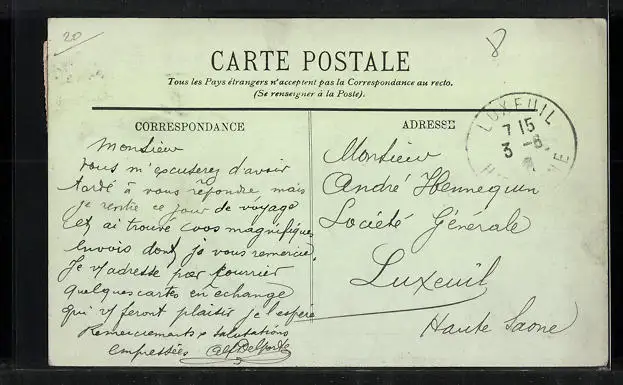 20
8
CARTE POSTALE
Tous les Pays étrangers n'acceptent pas la Correspondance au recto.
(Se renseigner à la Poste).
CORRESPONDANCE
Monsieur
vous m'excuserez d'avoir
tardé à vous répondre mais
je rentre ce jour de voyage
et ai trouvé vos magnifiques
envois dont je vous remercie.
Je v/adresse par courrier
quelques cartes en échange
qui v/ feront plaisir je l'espère
Remerciements & salutations
empressées Alf Delporte
ADRESSE
LUXEUIL
7 15
3 -8
Monsieur
André Hennequin
Société Générale
Luxeuil
Haute Saone